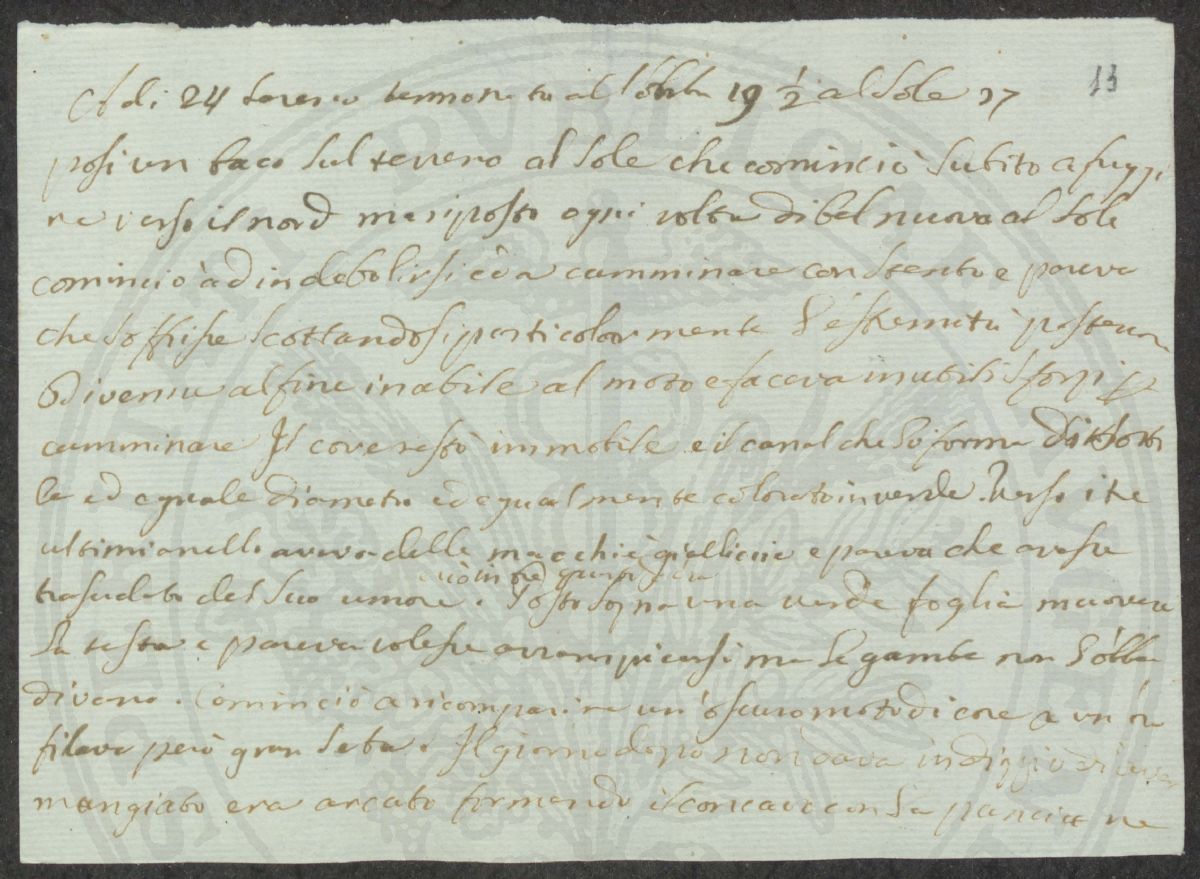 13
A di 24 termometro all'ombra 19 ½ al Sole 27
posi un baco sul terreno al Sole che cominciò subito a fuggi
re verso il nord ma riposto ogni volta di bel nuovo al Sole
cominciò ad indebolirsi ed a camminare con stento e pareva
che soffrisse scottandosi particolarmente l'estremità posterior
Divenne alfine inabile al moto e faceva inutili sforzi p
camminare Il core restò immobile e il canal che lo forma
le ed eguale diametro ed egualmente colorato in verde. Verso i tre
ultimi anelli aveva delle macchie gialliccie e pareva che avesse
ciò in ore
trasudato del suo umore. Posto sopra una verde foglia muoveva
la testa e pareva volesse arrampicarsi ma le gambe non l'obbe
divano. Cominciò a ricomparire un oscuro moto di core a un
filava però gran seta. Il giorno dopo non dava indizzio di aver
mangiato era arcato formando il concavo con la pancia ne